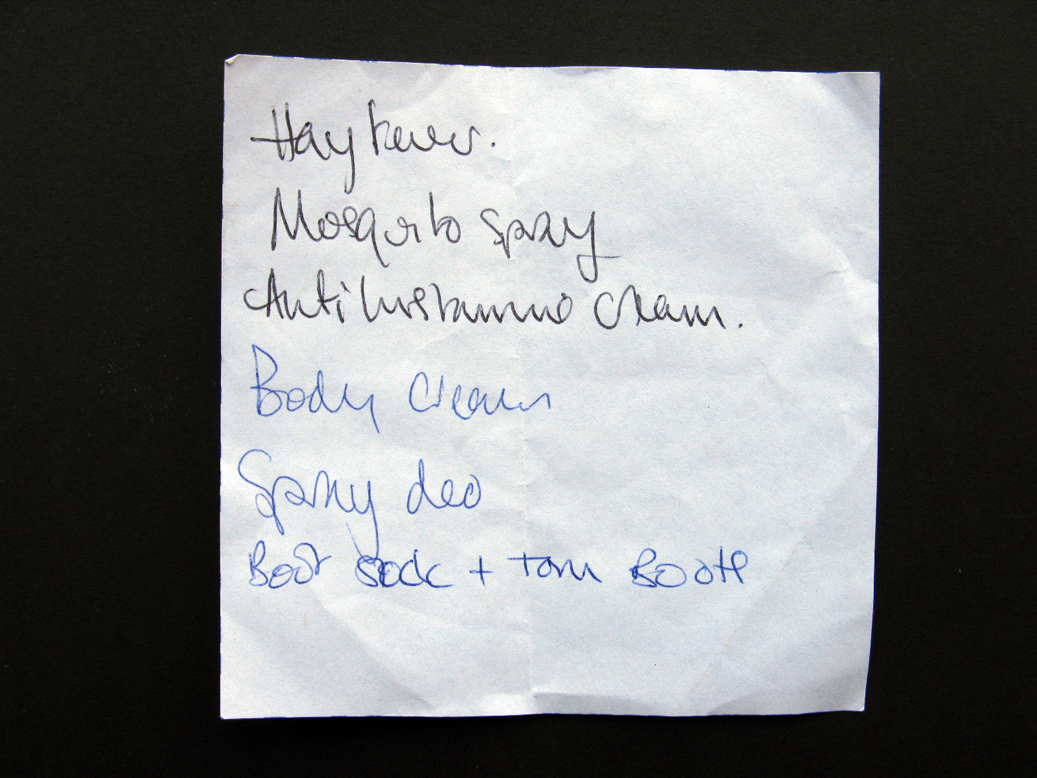 Hayfever.
Mosquito spray
Antihistamine cream.
Body cream
Spray deo
Boot sock + Tom Boots